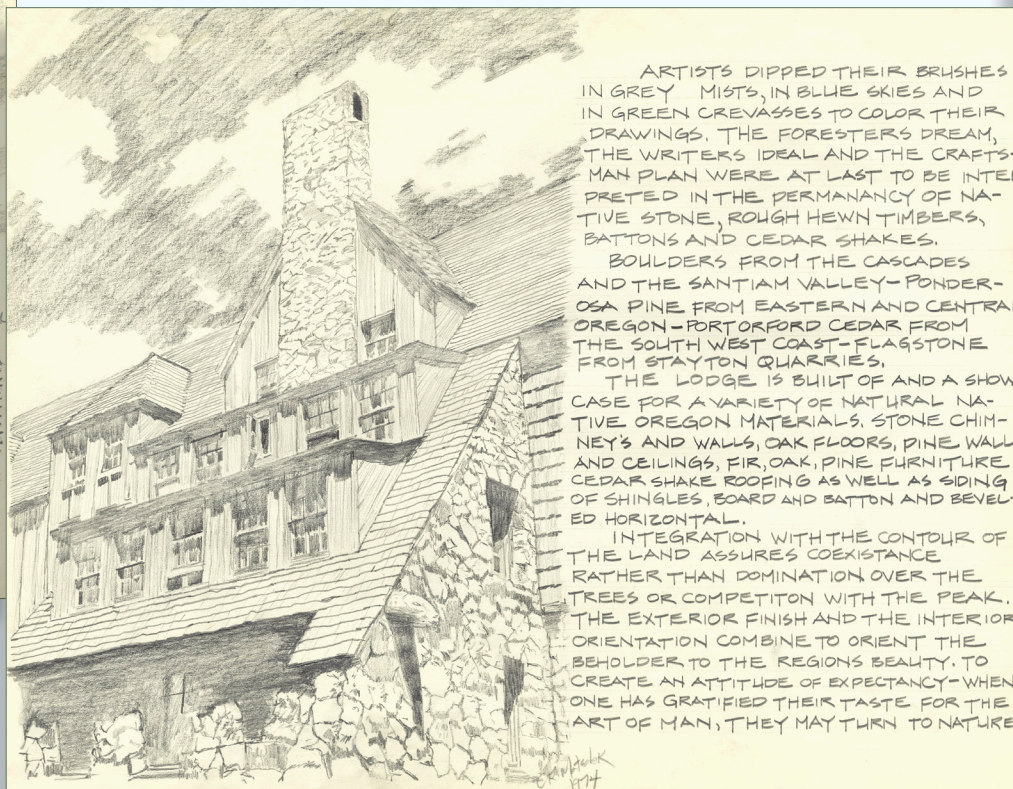 ARTISTS DIPPED THEIR BRUSHES
IN GREY MISTS, IN BLUE SKIES AND
IN GREEN CREVASSES TO COLOR THEIR
DRAWINGS. THE FORESTERS DREAM,
THE WRITERS IDEAL AND THE CRAFTS-
MAN PLAN WERE AT LAST TO BE INTER
PRETED IN THE PERMANANCY OF NA-
TIVE STONE, ROUGH HEWN TIMBERS,
BATTONS AND CEDAR SHAKES.
BOULDERS FROM THE CASCADES
AND THE SANTIAM VALLEY-PONDER-
OSA PINE FROM EASTERN AND CENTRAL
OREGON-PORTORFORD CEDAR FROM
THE SOUTH WEST COAST-FLAGSTONE
FROM STAYTON QUARRIES.
THE LODGE IS BUILT OF AND A SHOW
CASE FOR A VARIETY OF NATURAL NA-
TIVE OREGON MATERIALS. STONE CHIM-
NEY'S AND WALLS, OAK FLOORS, PINE WALL
AND CEILINGS, FIR, OAK, PINE FURNITURE
CEDAR SHAKE ROOFING AS WELL AS SIDING
OF SHINGLES, BOARD AND BATTON AND BEVEL-
ED HORIZONTAL.
INTEGRATION WITH THE CONTOUR OF
THE LAND ASSURES COEXISTANCE
RATHER THAN DOMINATION OVER THE
TREES OR COMPETITON WITH THE PEAK.
THE EXTERIOR FINISH AND THE INTERIOR
ORIENTATION COMBINE TO ORIENT THE
BEHOLDER TO THE REGIONS BEAUTY. TO
CREATE AN ATTITUDE OF EXPECTANCY-WHEN
ONE HAS GRATIFIED THEIR TASTE FOR THE
ART OF MAN, THEY MAY TURN TO NATURE
1974